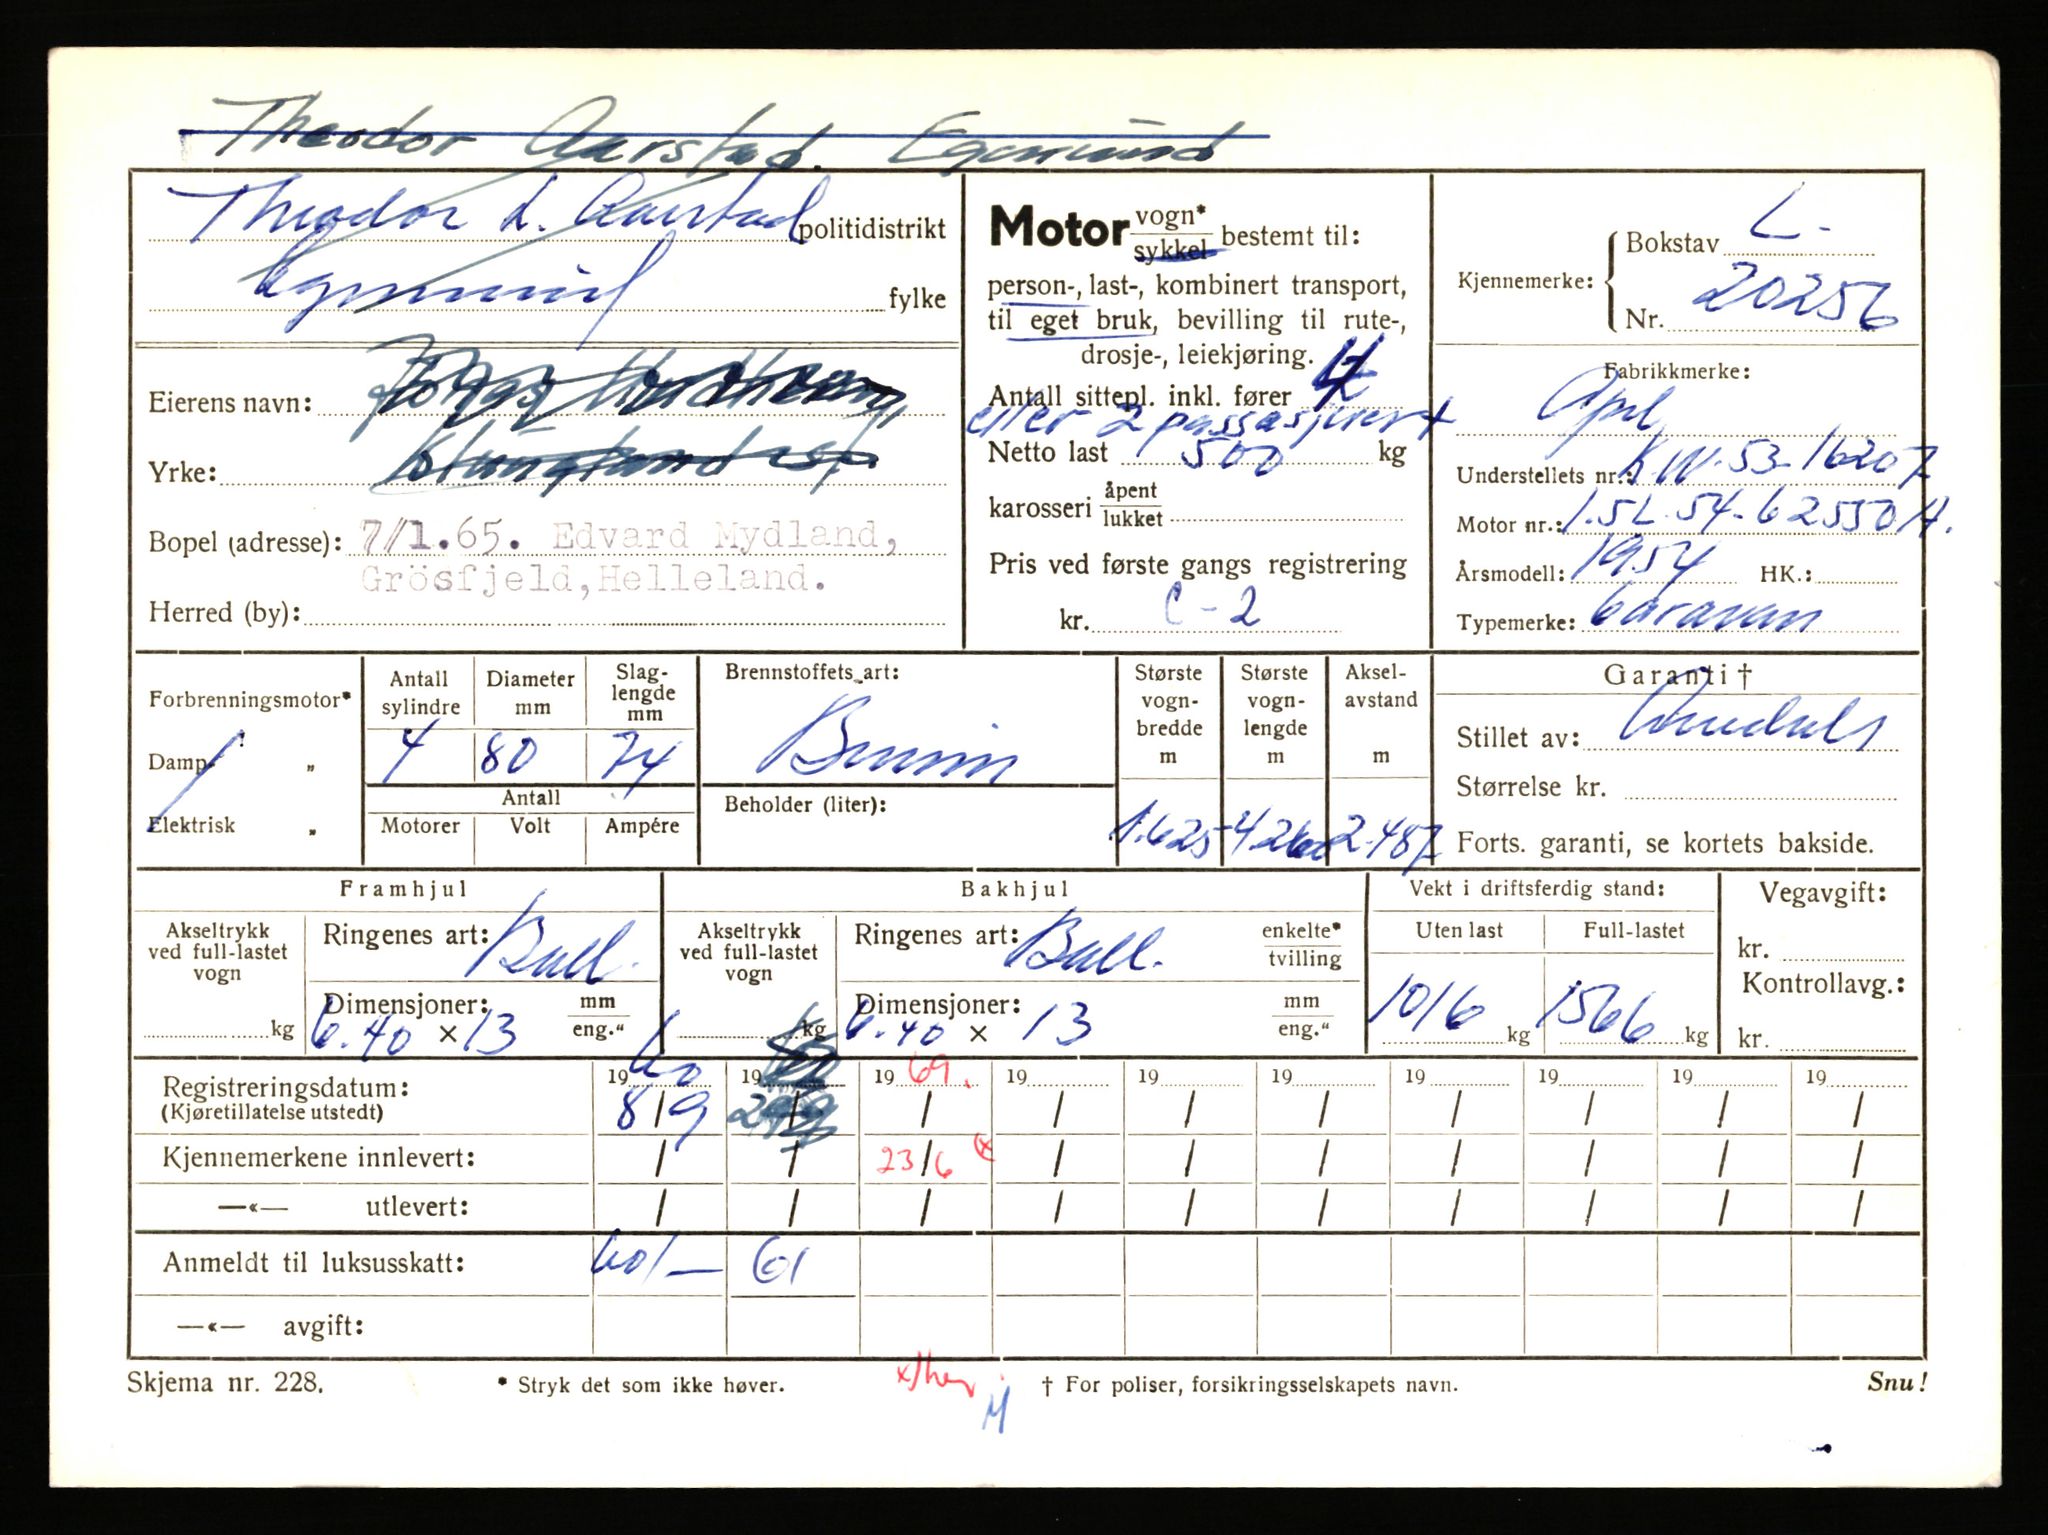 Theodor Aarstad. Egersund
Theodor L. Aarstad politidistrikt
Egersund fylke
Eierens navn:
Yrke:
Bopel (adresse): 7/1.65. Edvard Mydland,
Grösfjeld, Helleland.
Herred (by):
Motor vogn* sykkel bestemt til:
person-, last-, kombinert transport,
til eget bruk, bevilling til rute-,
drosje-, leiekjøring.
Antall sittepl. inkl. fører 4
eller 2 passasjerer +
Netto last 500 kg
karosseri åpent lukket
Pris ved første gangs registrering
kr. C-2
Kjennemerke: Bokstav L.
Nr. 20256
Fabrikkmerke:
Opel
Understellets nr.: K.W.53-16207
Motor nr.: 1.5L.54-62550 A.
Årsmodell: 1954 HK.:
Typemerke: Caravan
Forbrenningsmotor*
Damp „
Elektrisk „
Antall sylindre 4
Diameter mm 80
Slaglengde mm 74
Antall
Motorer Volt Ampére
Brennstoffets art:
Bensin
Beholder (liter):
Største vognbredde m 1.625
Største vognlengde m 4.26
Akselavstand m 2.487
Garanti †
Stillet av:
Størrelse kr.
Forts. garanti, se kortets bakside.
Framhjul
Akseltrykk ved full-lastet vogn kg
Ringenes art: Ball.
Dimensjoner: mm eng."
6.40 × 13
Bakhjul
Akseltrykk ved full-lastet vogn kg
Ringenes art: Ball. enkelte* tvilling
Dimensjoner: mm eng."
6.40 × 13
Vekt i driftsferdig stand:
Uten last Full-lastet
1016 kg 1566 kg
Vegavgift:
kr.
Kontrollavg.:
kr.
Registreringsdatum: 1960 19 1969. 19 19 19 19 19 19 19
(Kjøretillatelse utstedt) 8/9 / / / / / / / / /
Kjennemerkene innlevert: / / 23/6 x / / / / / / /
—«— utlevert: / / / / / / / / / /
Anmeldt til luksusskatt: 60/— 61
—«— avgift:
Skjema nr. 228. * Stryk det som ikke høver. † For poliser, forsikringsselskapets navn. Snu!
M